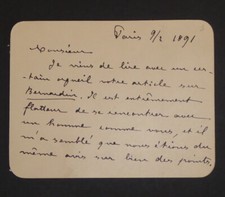 Paris 9/2 1891
Monsieur
Je viens de lire avec un cer-
tain orgueil votre article sur
Bernardin. Il est extrêmement
flatteur de se rencontrer avec
un homme comme vous, et il
m'a semblé que nous étions du
même avis sur bien des points,